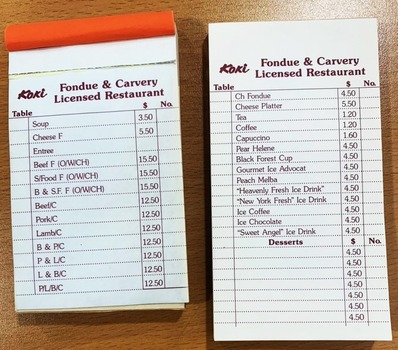 Koki Fondue & Carvery
Licensed Restaurant
Table $ No.
Soup 3.50
Cheese F 5.50
Entree
Beef F (O/W/CH) 15.50
S/Food F (O/W/CH) 15.50
B & S.F. F (O/W/CH) 15.50
Beef/C 12.50
Pork/C 12.50
Lamb/C 12.50
B & P/C 12.50
P & L/C 12.50
L & B/C 12.50
P/L/B/C 12.50
Koki Fondue & Carvery
Licensed Restaurant
Table $ No.
Ch Fondue 4.50
Cheese Platter 5.50
Tea 1.20
Coffee 1.20
Capuccino 1.60
Pear Helene 4.50
Black Forest Cup 4.50
Gourmet Ice Advocat 4.50
Peach Melba 4.50
"Heavenly Fresh Ice Drink" 4.50
"New York Fresh" Ice Drink 4.50
Ice Coffee 4.50
Ice Chocolate 4.50
"Sweet Angel" Ice Drink 4.50
Desserts $ No.
4.50
4.50
4.50
4.50
4.50
4.50